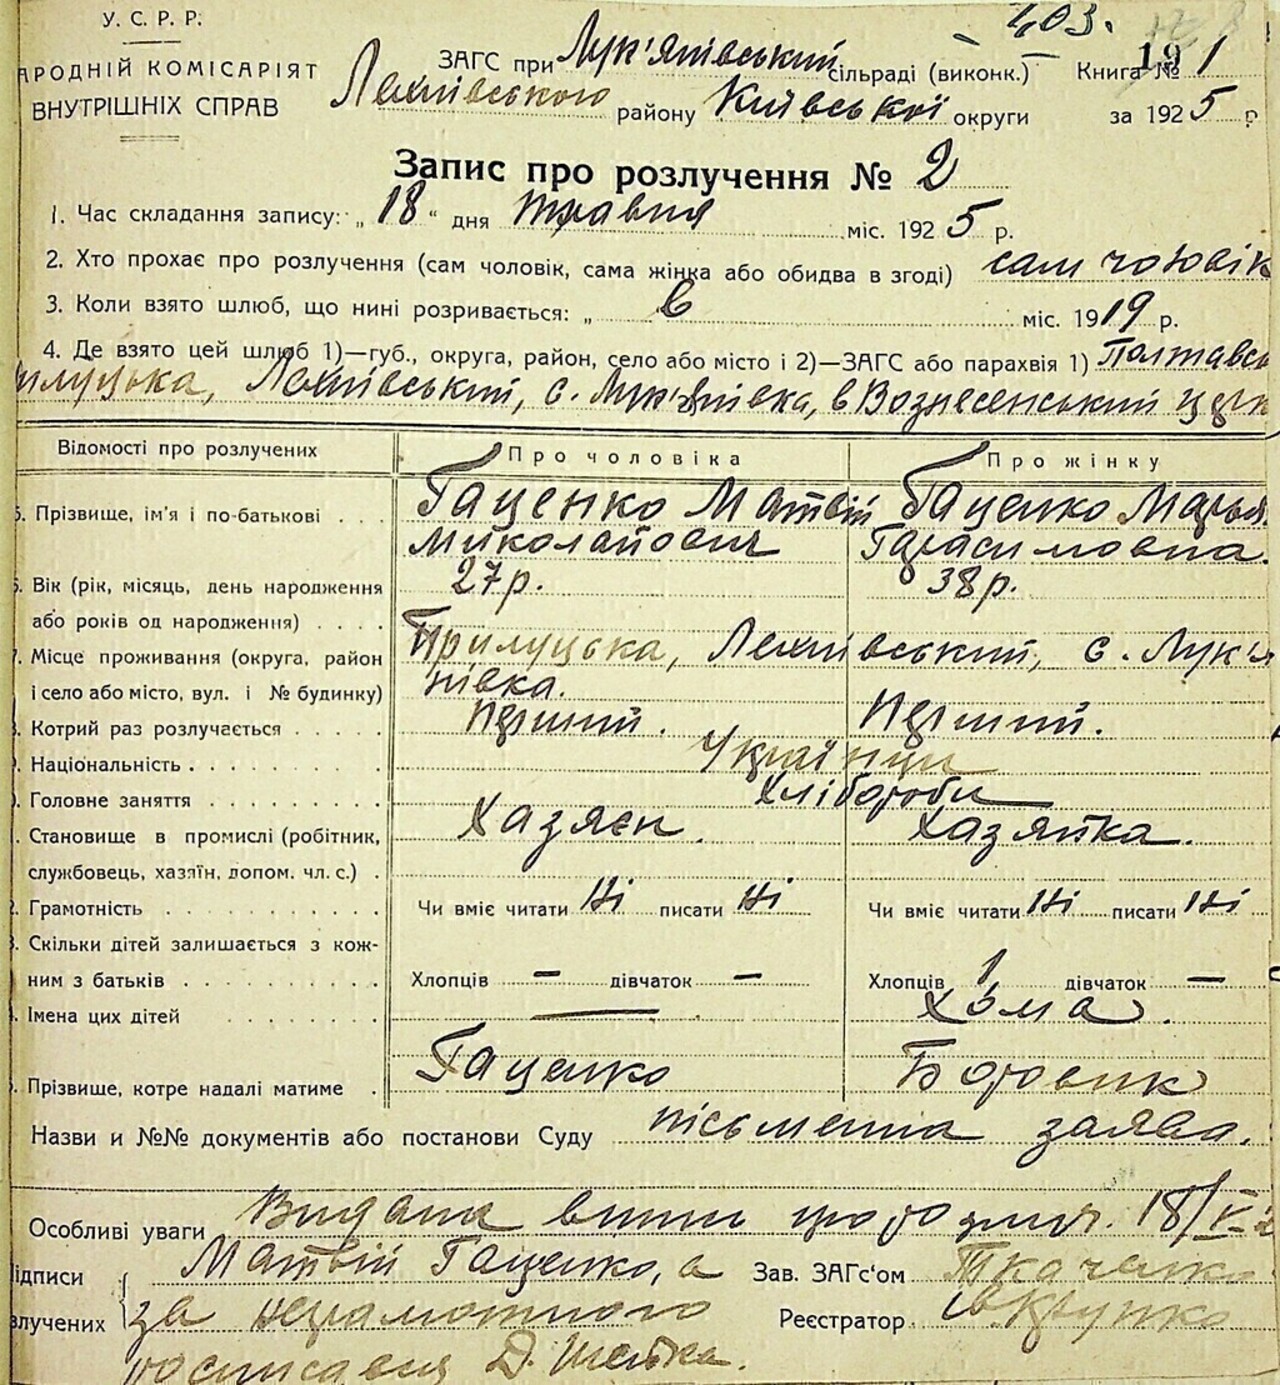 У. С. Р. Р.
АРОДНІЙ КОМІСАРІЯТ
ВНУТРІШНІХ СПРАВ
403.
ЗАГС при Лук'янівський сільраді (виконк.) Книга № 1
Лехнівського району Київської округи за 1925 р
Запис про розлучення № 2
1. Час складання запису: „18“ дня травня міс. 1925 р.
2. Хто прохає про розлучення (сам чоловік, сама жінка або обидва в згоді) сам чоловік
3. Коли взято шлюб, що нині розривається: „ в міс. 1919 р.
4. Де взято цей шлюб 1)—губ., округа, район, село або місто і 2)—ЗАГС або парахвія 1) Полтавсь
илуцька, Лехнівський, с. Лук'янівка, в Вознесенський церк
Відомості про розлучених Про чоловіка Про жінку
5. Прізвище, ім'я і по-батькові . . . Гаценко Матвій Гаценко Марья
Миколайович Герасимовна.
6. Вік (рік, місяць, день народження 27 р. 38 р.
або років од народження) . . . .
7. Місце проживання (округа, район Прилуцька, Лехнівський, с. Лук'я
і село або місто, вул. і № будинку) нівка.
8. Котрий раз розлучається . . . . . Перший. Перший.
9. Національність . . . . . . . . Українци
0. Головне заняття . . . . . . . . . Хлібороби
. Становище в промислі (робітник, Хазяєн. Хазяйка.
службовець, хазяїн, допом. чл. с.) .
2. Грамотність . . . . . . . . . . Чи вміє читати Ні писати Ні Чи вміє читати Ні писати Ні
3. Скільки дітей залишається з кож-
ним з батьків . . . . . . . . . . Хлопців — дівчаток — Хлопців 1 дівчаток —
4. Імена цих дітей . . . . . . . . — Хома.
5. Прізвище, котре надалі матиме . Гаценко Боровик
Назви и №№ документів або постанови Суду пісьменна заява.
Особливі уваги Видана випис про розлуч. 18/V-2
ідписи Матвій Гаценко, а Зав. ЗАГс'ом Ткаченко
злучених за неграмотного Реєстратор Крупко
росписався Д. Шейка.